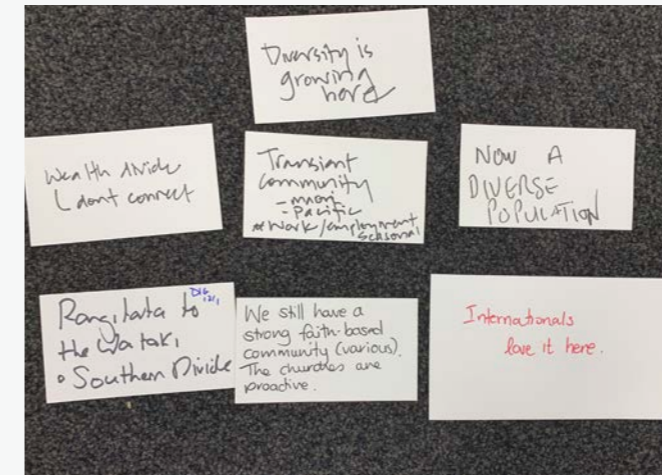 Diversity is
growing
here
Wealth divide
dont connect
Transient
Community
- maori
- Pacific
* Work/employment
seasonal
NOW A
DIVERSE
POPULATION
Rangitata to
the Waitaki
• Southern Divide
We still have a
strong faith-based
community (various).
The churches are
proactive.
Internationals
love it here.